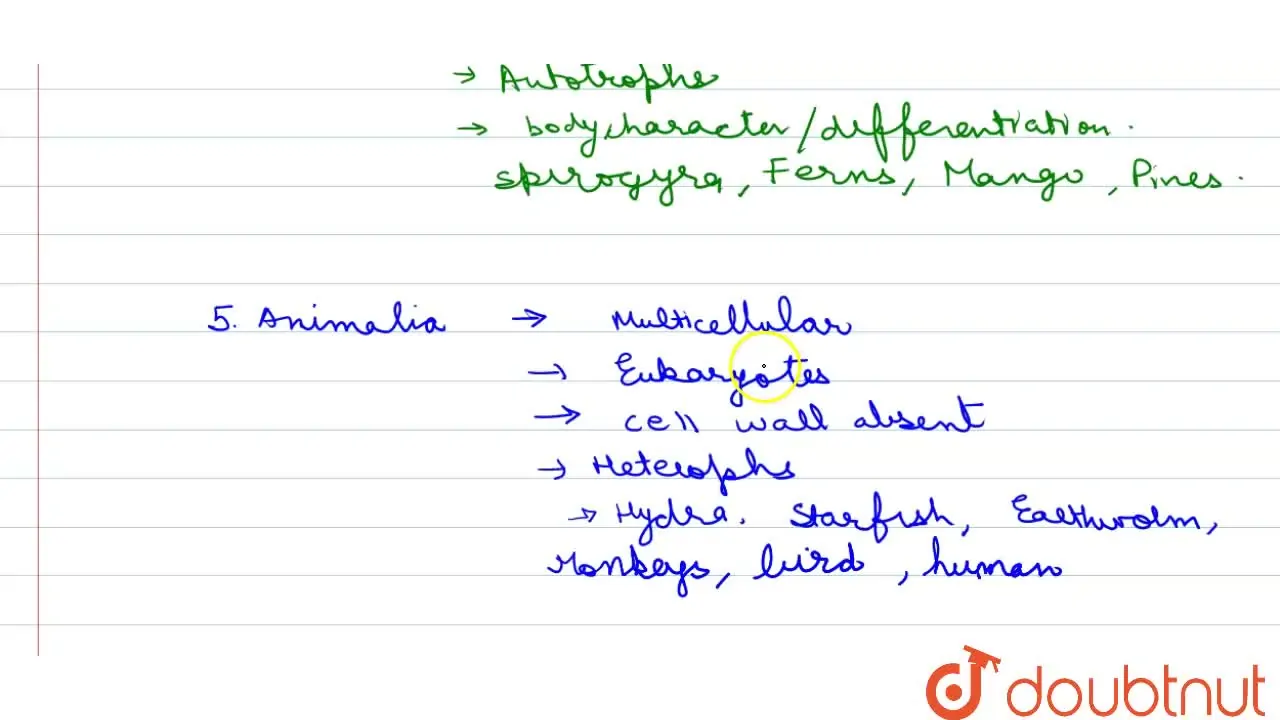 → Autotrophs
→ body character / differentiation.
spirogyra, Ferns, Mango, Pines.
5. Animalia → Multicellular
→ Eukaryotes
→ cell wall absent
→ Heterophs
→ Hydra. Starfish, Earthworm,
Monkeys, bird, human
doubtnut